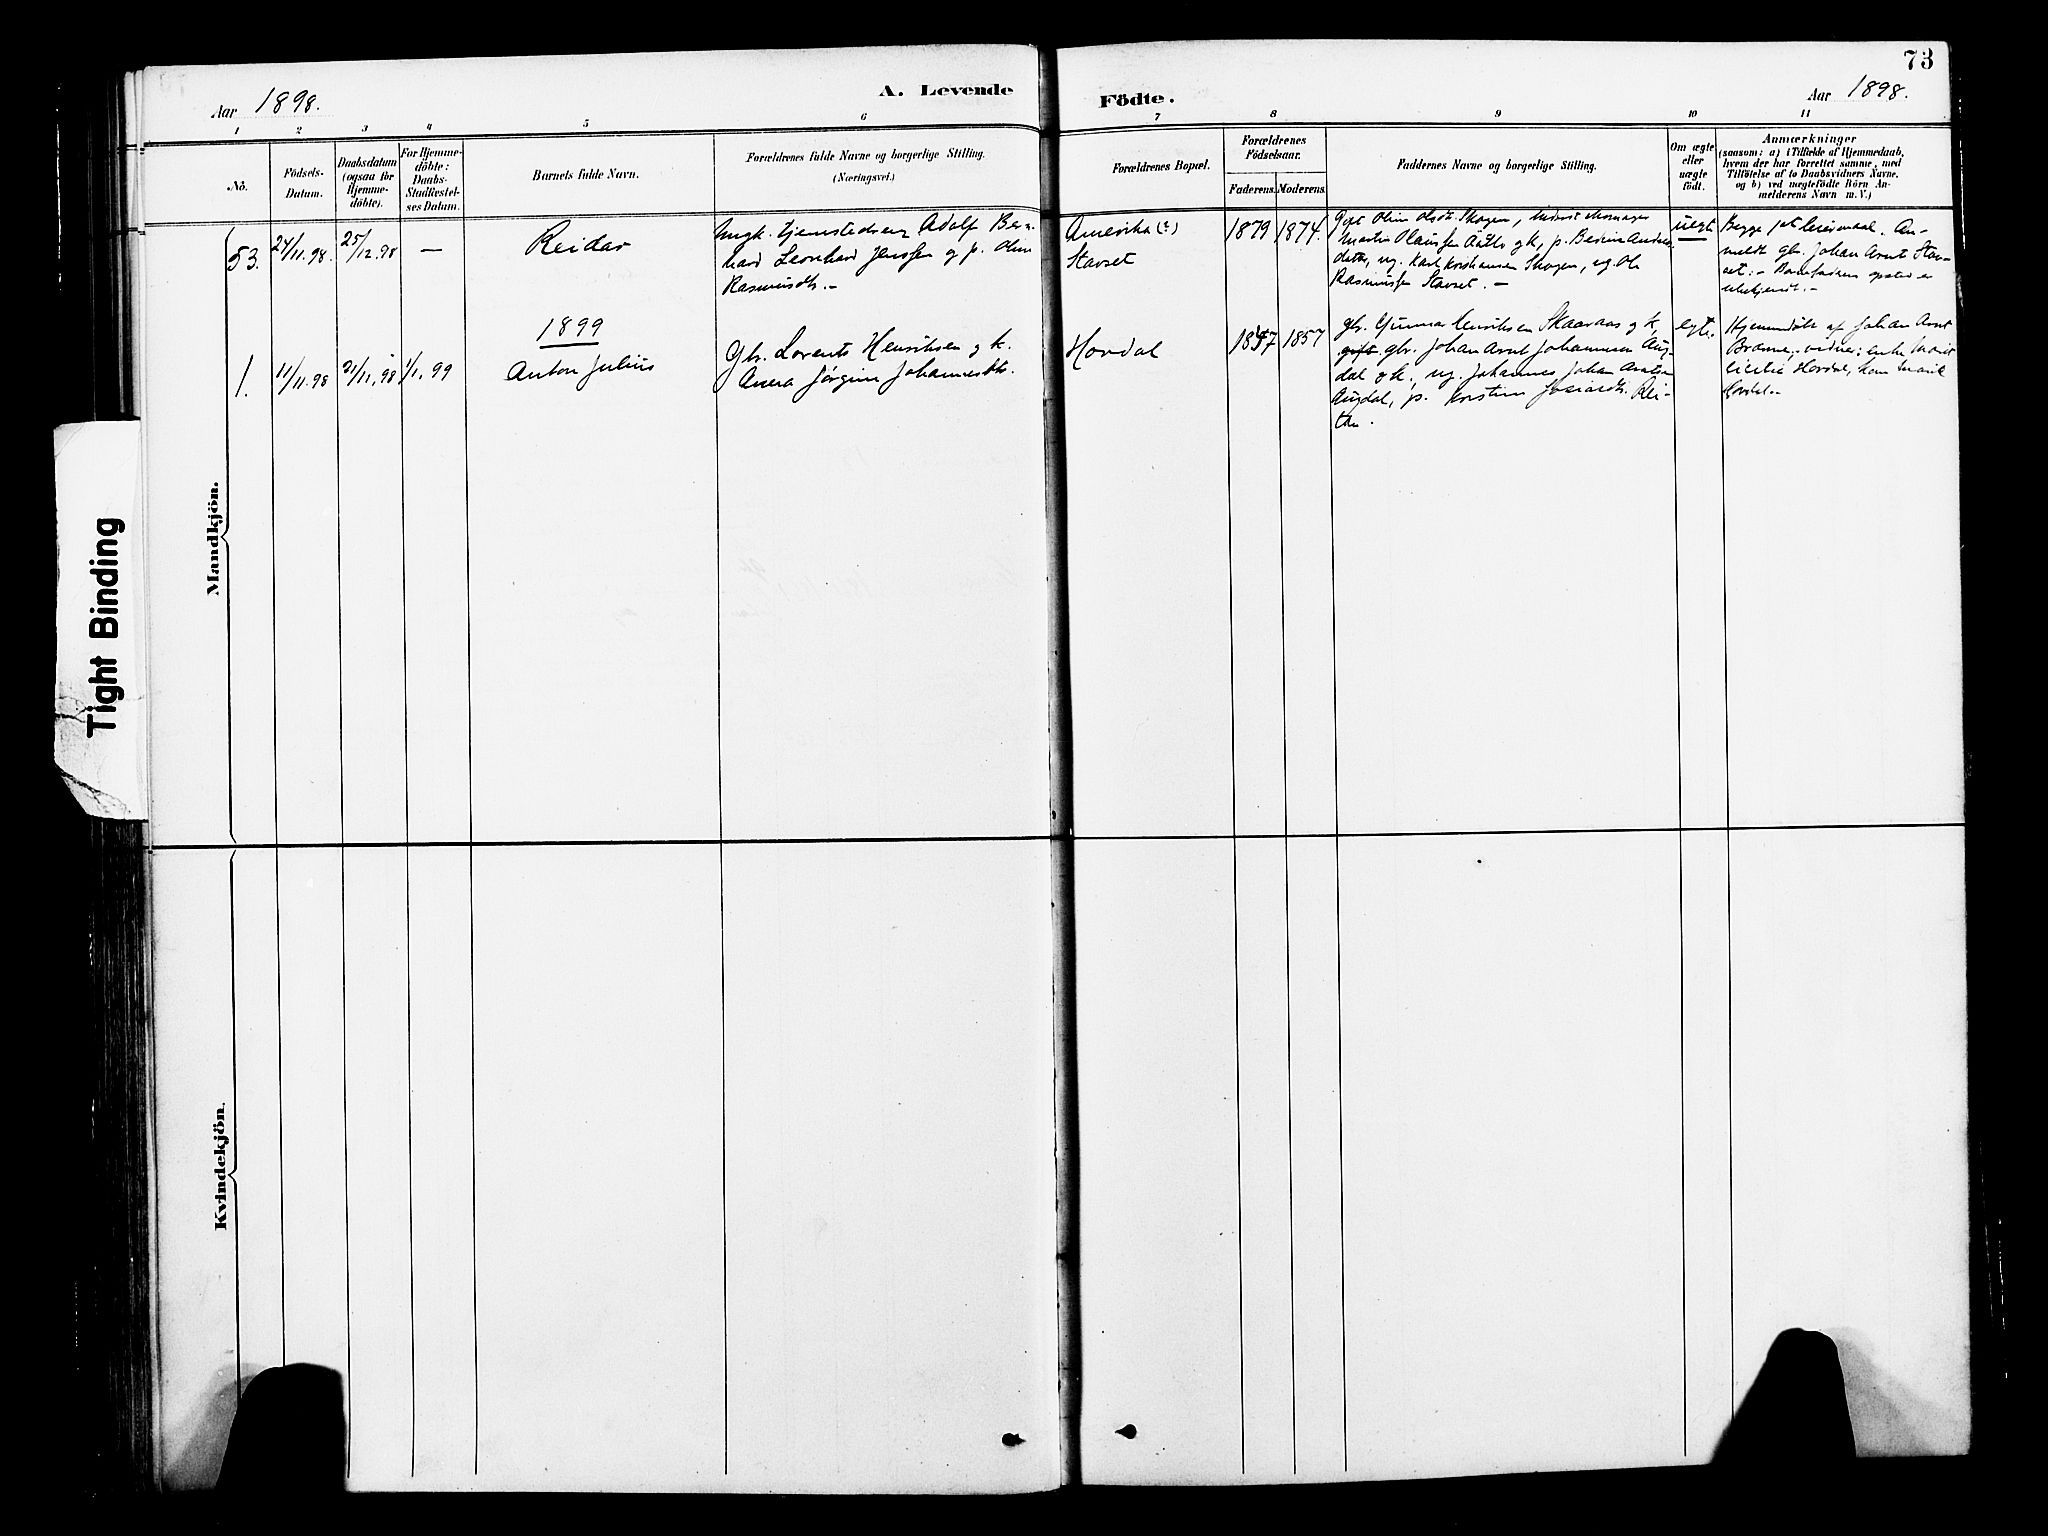 73
Aar 1898.
A. Levende
Födte.
Aar 1898.
1 2 3 4 5 6 7 8 9 10 11
No.
Födsels-
Datum.
Daabsdatum
(ogsaa for
Hjemme-
döbte).
For Hjemme-
döbte:
Daabs-
Stadfæstel-
ses Datum.
Barnets fulde Navn.
Forældrenes fulde Navne og borgerlige Stilling.
(Næringsvei.)
Forældrenes Bopæl.
Forældrenes
Födselsaar.
Faderens. Moderens.
Faddernes Navne og borgerlige Stilling.
Om ægte
eller
uægte
födt.
Anmærkninger
(saasom: a) i Tilfælde af Hjemmedaab,
hvem der har forrettet samme, med
Tilföielse af to Daabsvidners Navne,
og b) ved uegtefödte Börn An-
melderens Navn m. V.)
Mandkjön.
53.
24/11.98.
25/12.98
—
Reidar
Ungk. Adolf Bern-
hard Leonhard Jenssen og p. Oline
Rasmusdtr. -
Amerika (?)
Stavset
1879 1874.
Martin Olaussen og k, p.
ug. Karl Kristiansen Skogen, ug. Ole
Rasmussen Stavset. -
uegt
Begge
An-
meldt gbr. Johan Arnt Stav-
set: - Barnefaderens opsted er
ubekjendt. -
1899
1.
11/11.98
21/11.98
1/1.99
Anton Julius
Gbr. Lorents Henriksen og k.
Anna Jørgine Johannesdtr.
Hovdal
1857 1857
gbr. Gunnar Henriksen Skaaraas og k,
gift. gbr. Johan Arnt Johannesen Aug-
dal og k., ug. Johannes Johan
Augdal, p. Kristine Rei-
tan.
egt.
Hjemmedøbt af Johan Arnt
vidner: enke Marit
Hovdal,
Hovdal.
Kvindekjön.
Tight Binding